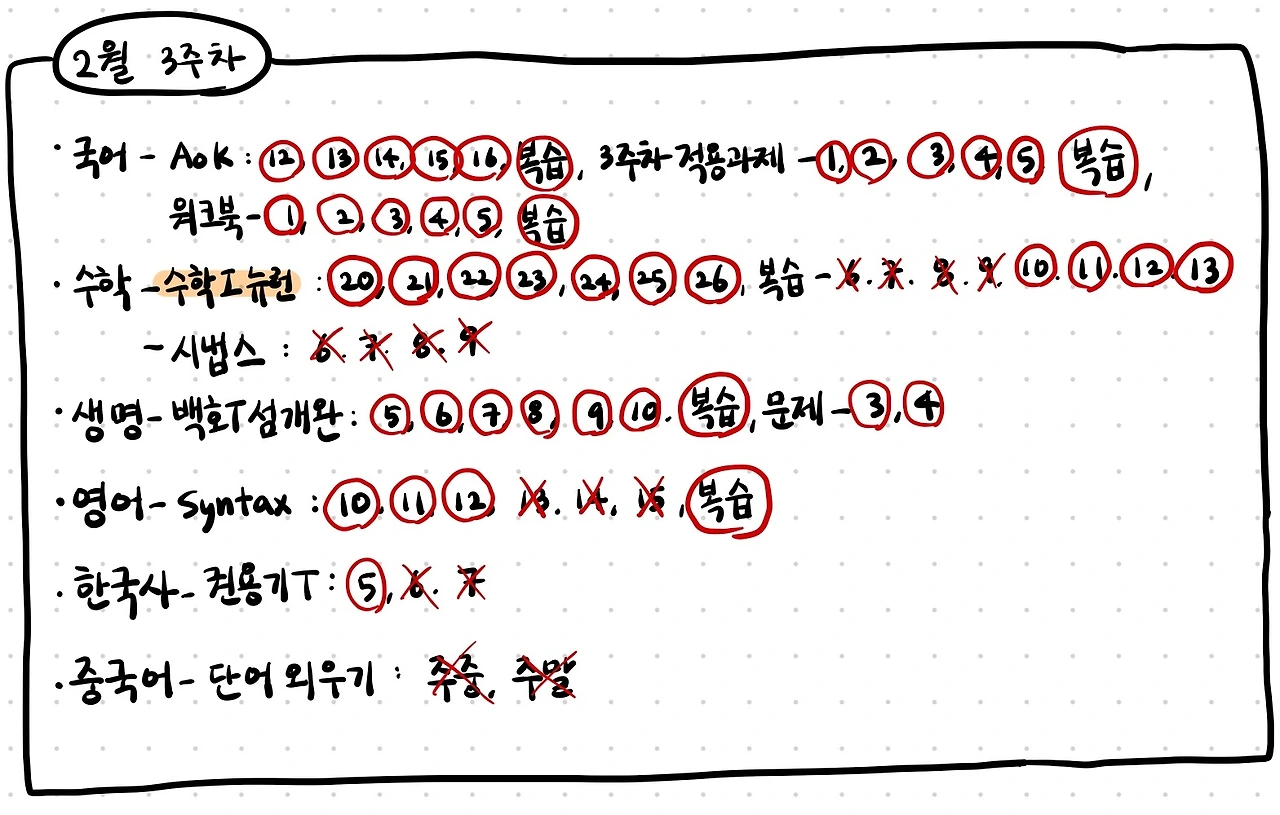 2월 3주차
· 국어 - AOK : 12 13 14, 15, 16, 복습, 3주차 적용과제 - 1, 2, 3, 4, 5 복습,
워크북 - 1, 2, 3, 4, 5, 복습
· 수학 - 수학I 뉴런 : 20, 21, 22, 23, 24, 25, 26, 복습 - 6. 7. 8. 9. 10. 11. 12. 13
- 시냅스 : 6. 7. 8. 9
· 생명 - 백호T 섬개완 : 5, 6, 7, 8, 9, 10. 복습, 문제 - 3, 4
· 영어 - Syntax : 10, 11, 12, 13. 14, 15, 복습
· 한국사 - 권용기T : 5, 6. 7
· 중국어 - 단어 외우기 : 주중, 주말